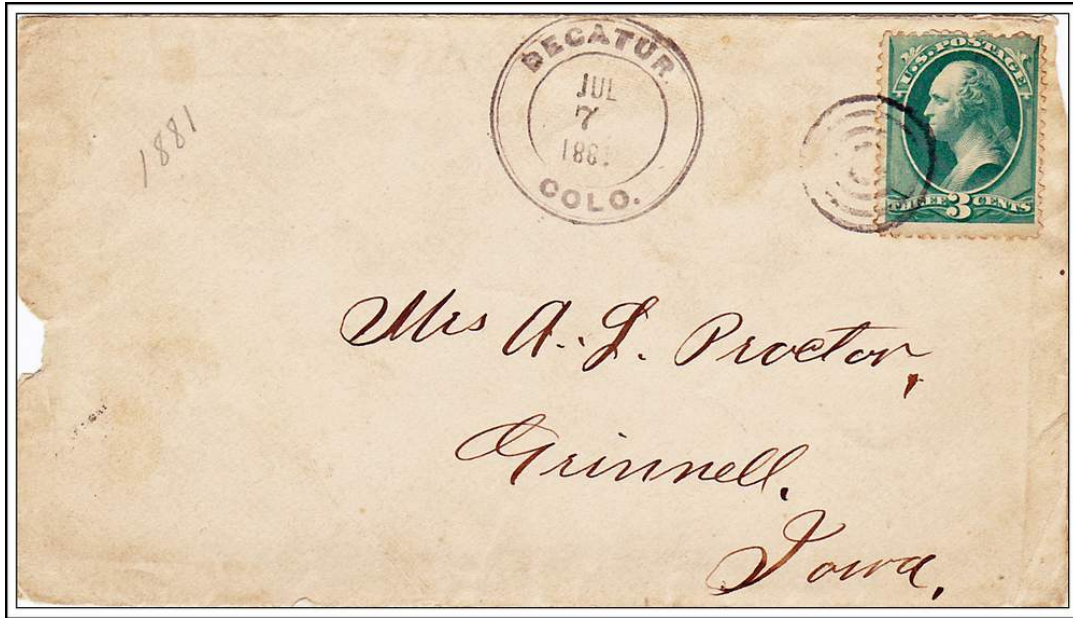 DECATUR.
JUL
7
188
COLO.
U.S. POSTAGE
THREE 3 CENTS
1881
Mrs A. L. Proctor,
Grinnell.
Iowa,